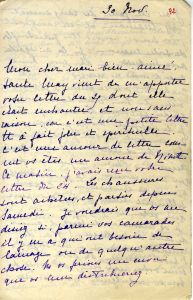 30 Nov.
92
Mon cher mari bien aimé
Tante May vient de m'apporter
votre lettre du 27 dont elle
était enchantée et vous avez
raison, car c'est une petite lettre
tt à fait jolie et spirituelle
c'est une amour de lettre com
me vs êtes un amour de
Ce matin j'avais reçu votre
lettre du 24. Les chaussures
sont achetées, et parties depuis
Samedi. Je voudrais que vs me
disiez si parmi vos camarades
il y en a qui ont besoin de
lainage ou de quelqu'autre
chose. Ns vs prions une
que vs leur distribuerez